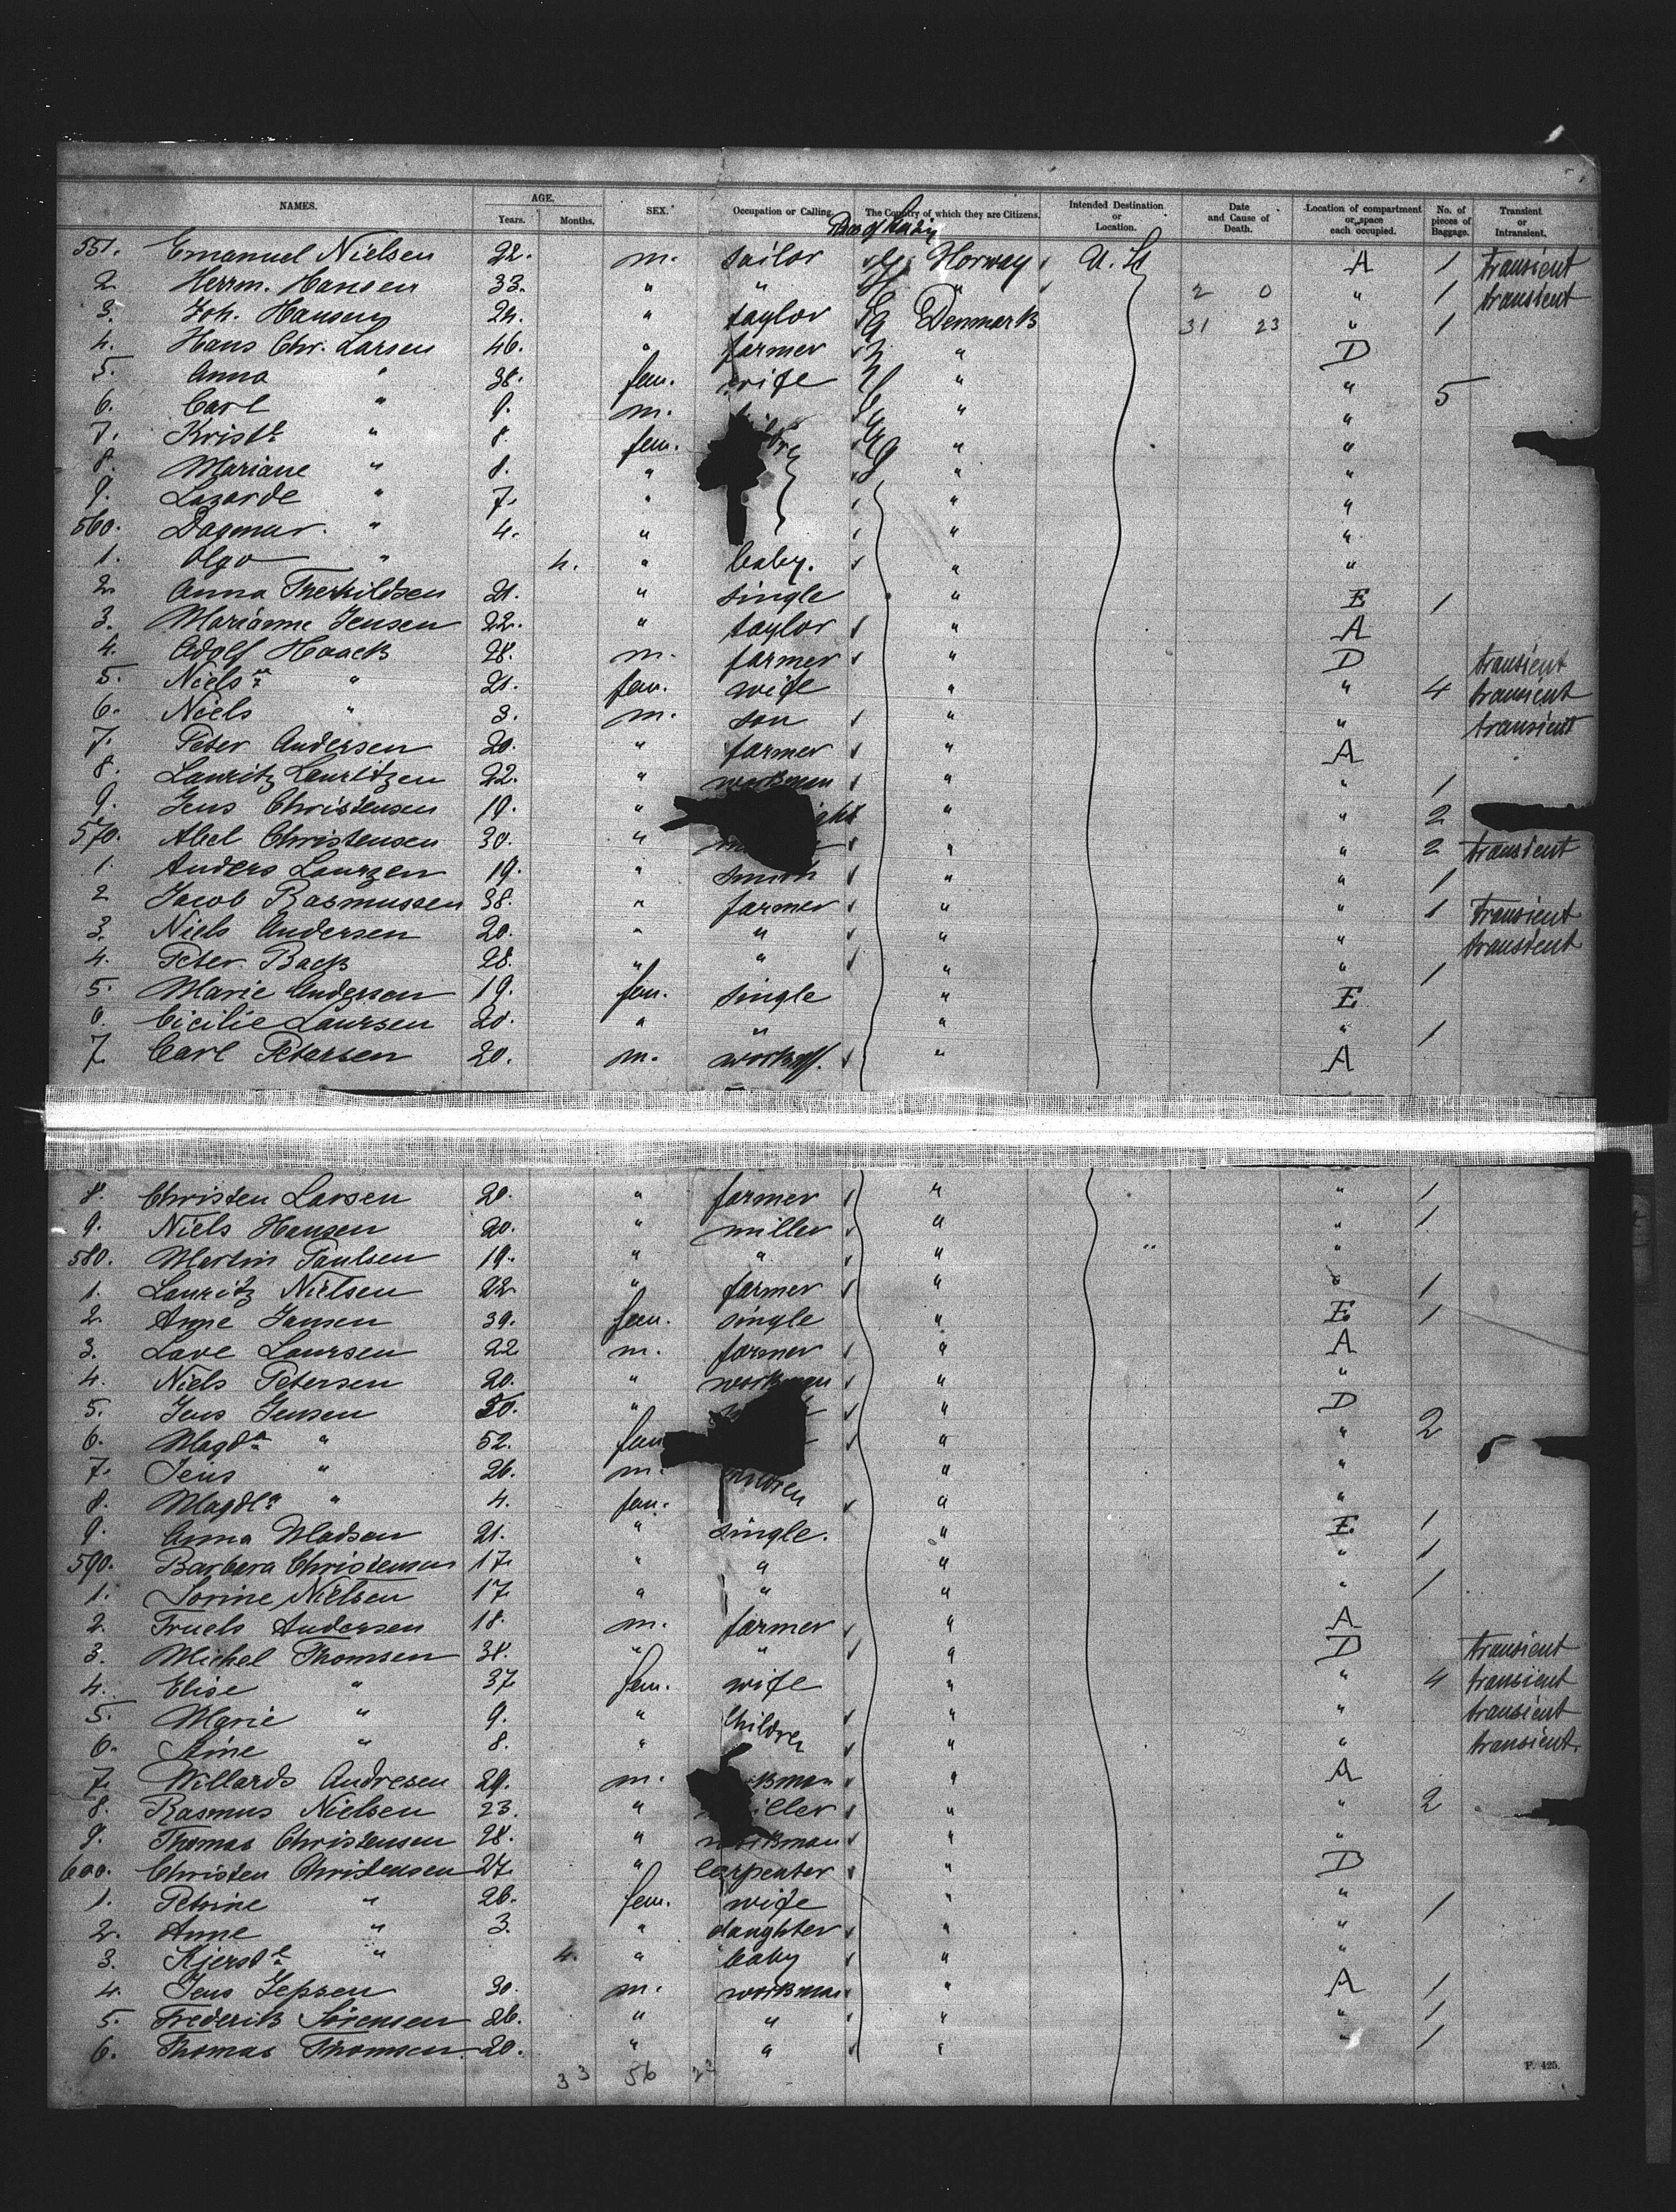 NAMES. AGE. Years. Months. SEX. Occupation or Calling. The Country of which they are Citizens. Intended Destination or Location. Date and Cause of Death. Location of compartment or space each occupied. No. of pieces of Baggage. Transient or Intransient.
551. Emanuel Nielsen 22. m. sailor Norway U. St A 1 transient
2 Herrm. Hansen 33. " " " 2 0 " 1 transient
3. Joh. Hansen 24. " taylor Denmark 31 23 " 1
4. Hans Chr. Larsen 46. " farmer " D
5. Anna " 38. fem. wife " "
6. Carl " 9. m. " " 5
7. Kriste " 8. fem. " "
8. Mariane " 8. " " "
9. Lazarde " 7. " " "
560. Dagmar " 4. " " "
1. Olga " 4. " baby. " "
2. Anna Therkildsen 21. " single " E 1
3. Marianne Jensen 22. " taylor " A
4. Adolf Haack 28. m. farmer " D transient
5. Niels " 21. fem. wife " " 4 transient
6. Niels " 3. m. son " " transient
7. Peter Andersen 20. " farmer " A
8. Lauritz Lauritzen 22. " workman " " 1
9. Jens Christensen 19. " " " 2
570. Abel Christensen 30. " " " 2 transient
1. Anders Laurzen 19. " smith " " 1
2 Jacob Rasmussen 38. " farmer " " 1 transient
3. Niels Andersen 20. " " " " transient
4. Peter Back 28. " " " " 1
5. Marie Andersen 19. fem. single " E
6. Cicilie Laursen 20. " " " " 1
7 Carl Petersen 20. m. " A
8. Christen Larsen 20. " farmer " " 1
9. Niels Hansen 20. " miller " " 1
580. Martin Paulsen 19. " " " "
1. Lauritz Nielsen 22 " farmer " " 1
2. Anne Jansen 39. fem. single " E 1
3. Lave Laursen 22 m. farmer " A
4. Niels Petersen 20. " workman " "
5. Jens Jensen 50. " " D 2
6. Magda " 52. fem " "
7. Jens " 26. m. children " "
8. Magdla " 4. fem. " "
9. Anna Madsen 21. " single. " E 1
590. Barbara Christensen 17. " " " " 1
1. Sorine Nielsen 17 " " " " 1
2. Truels Andersen 18. m. farmer " A
3. Michel Thomsen 38. " " " D transient
4. Elise " 37 fem. wife " " 4 transient
5. Marie " 9. " Children " " transient
6. Stine " 8. " " " transient.
7. Willards Andresen 29. m. kman " A
8. Rasmus Nielsen 23. " iller " " 2
9. Thomas Christensen 28. " workman " "
600. Christen Christensen 27. " Carpenter " D
1. Petrine " 26. fem. wife " " 1
2. Anne " 3. " daughter " "
3. Kjerste " 4. " baby " "
4. Jens Jepsen 30. m. workman " A 1
5. Frederik Sörensen 26. " " " " 1
6. Thomas Thomsen 20. " " " " 1
33 56
F. 425.